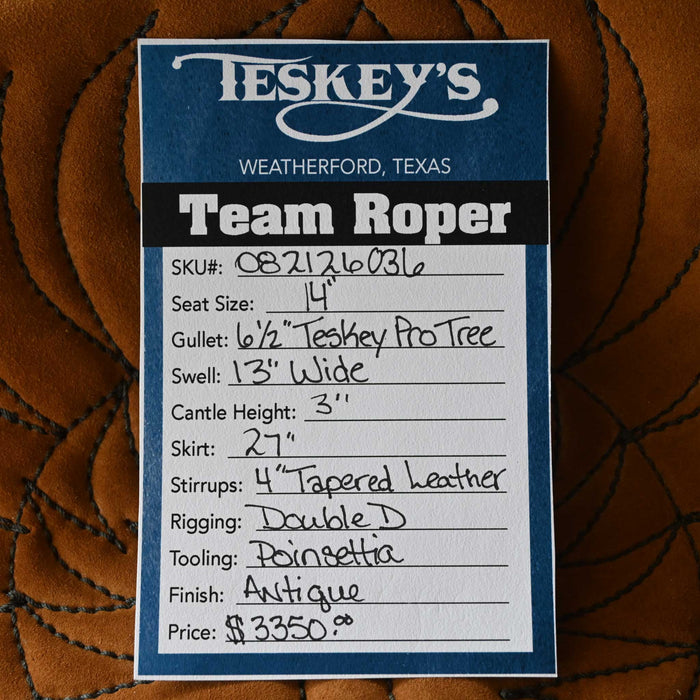 TESKEY'S
WEATHERFORD, TEXAS
Team Roper
SKU#: 082126036
Seat Size: 14"
Gullet: 6 1/2" Teskey Pro Tree
Swell: 13" Wide
Cantle Height: 3"
Skirt: 27"
Stirrups: 4" Tapered Leather
Rigging: Double D
Tooling: Poinsettia
Finish: Antique
Price: $3350.00